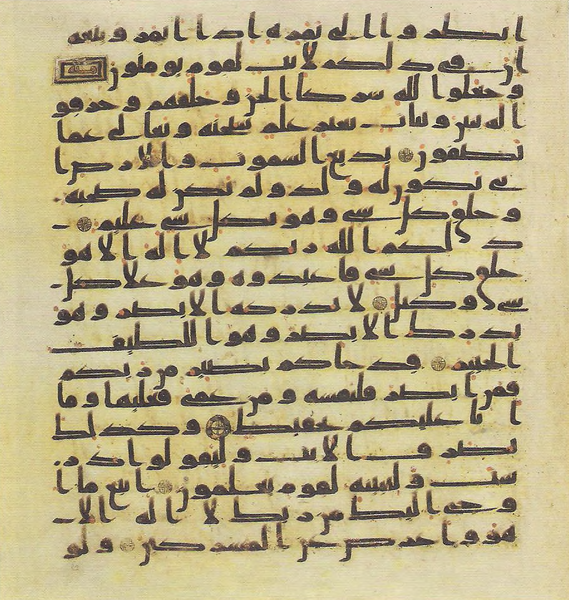 انظروا الى ثمره اذا اثمر وينعه
ان في ذلكم لايت لقوم يومنون
وجعلوا لله شركا الجن وخلقهم وخرقو
ا له بنين وبنت بغير علم سبحنه وتعلى عما
يصفون بديع السموت والارض ا
نى يكون له ولد ولم تكن له صحبة
وخلق كل شي وهو بكل شي عليم
ذلكم الله ربكم لا اله الا هو
خلق كل شي فاعبدوه وهو على كل
شي وكيل لا تدركه الابصر وهو
يدرك الابصر وهو اللطيف
الخبير قد جاكم بصير من ربكم
فمن ابصر فلنفسه ومن عمى فعليها وما
انا عليكم بحفيظ وكذلك
نصرف الايت وليقولوا در
ست ولنبينه لقوم يعلمون اتبع ما ا
وحى اليك من ربك لا اله الا
هو واعرض عن المشركين ولو